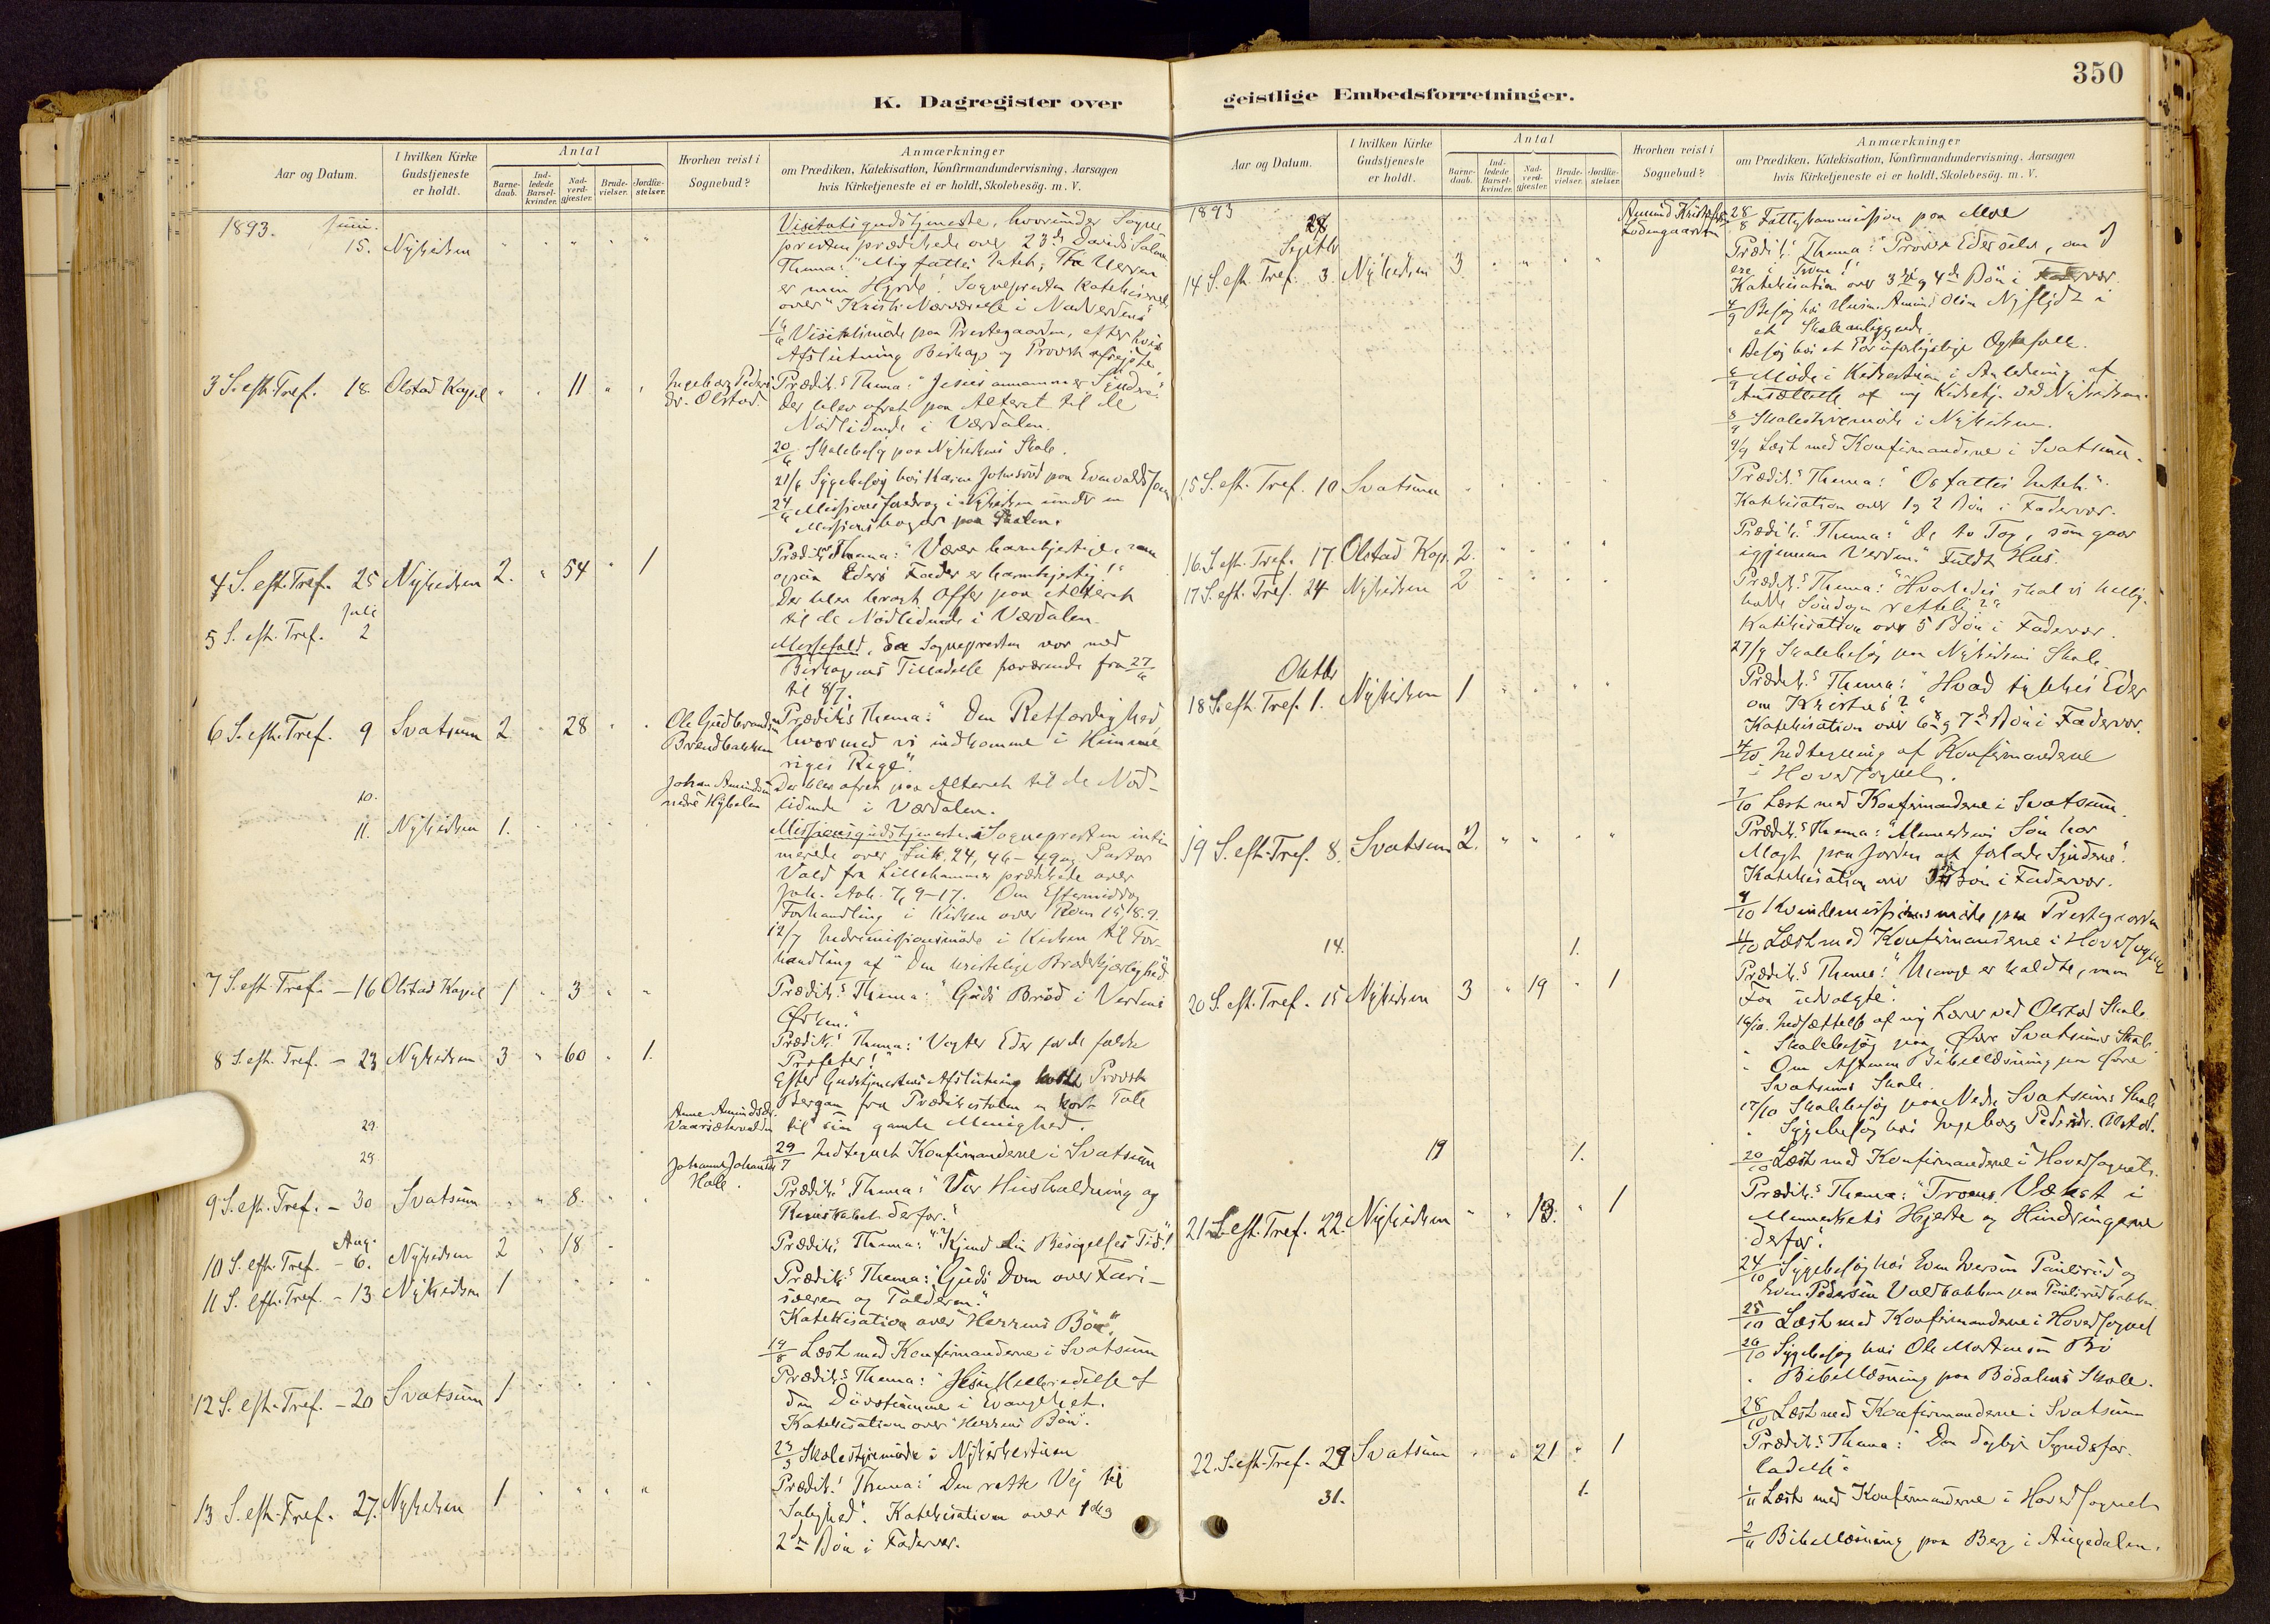 K. Dagregister over
Aar og Datum.
I hvilken Kirke Gudstjeneste er holdt.
Antal
Barnedaab.
Indledede Barselkvinder.
Nadverdgjæster.
Brudevielser.
Jordfæstelser.
Hvorhen reist i Sognebud?
Anmærkninger
om Prædiken, Katekisation, Konfirmandundervisning, Aarsagen
hvis Kirketjeneste ei er holdt, Skolebesög. m. V.
1893. Juni.
15. Nykirken
Visitatsgudstjeneste, hvorunder Sogne
presten prædikede over 23de Davids Salme
Thema: "Mig fattes Intet; Thi Herren
er min Hyrde". Sognepresten katekiserede
over "Kristi Nærværelse i Nadverden"
Visitatsmöde paa Prestegaarden, efter hvis
Afslutning Biskop og Provst afreiste.
3 S. eft. Tref. 18. Olstad Kapel " " 11 " " Ingeborg Peders
dr. Olstad.
Prædik.s Thema: "Jesus annammer Syndere".
Der blev ofret paa Alteret til de
Nödlidende i Værdalen.
20/6 Skolebesög paa Nykirkens Skole.
21/6 Sygebesög hos Karen Johnsrud paa
24/6 Missionsforedrag i Nykirken under en
4 S. eft. Tref. 25 Nykirken 2. " 54 " 1
Prædik.s Thema: "Værer barmhjertige, som
ogsaa Eders Fader er barmhjertig!"
Der blev bragt Offer paa Alteret
til de Nödlidende i Værdalen.
Juli
5 S. eft. Tref. 2
Messefald, da Sognepresten var med
Biskopens Tilladelse fraværende fra 27/6
til 8/7.
6 S. eft. Tref. 9 Svatsum 2. " 28 " " Ole Gudbrandsen
Brendbakken
Prædik.s Thema: "Den Retfærdighed
hvormed vi indkomme i Himme
riges Rige".
10. Johan Amundsen
nedre Kybelen
Der blev ofret paa Alteret til de Nöd-
lidende i Værdalen.
11. Nykirken 1.
Missionsgudstjeneste. Sognepresten inti
merede over Luk. 24, 46-49 og Pastor
Vold fra Lillehammer prædikede over
Joh. Aab. 7, 9-17. Om Eftermiddag
Forhandling i Kirken over Rom 15, 8.9.
12/7 Indremissionsmöde i Kirken til For-
handling af "Den kristelige Broderkjærlighed"
7 S. eft. Tref. - 16 Olstad Kapel 1 " 3 " "
Prædik.s Thema: "Guds Bröd i Verdens
Ørken."
8 S. eft. Tref. - 23 Nykirken 3 " 60 " 1.
Prædik.s Thema: "Vogter Eder for de falske
Profeter!"
Efter Gudstjenestens Afslutning holdt Provst
Bergan fra Prædikestolen en kort Tale
til sin gamle Menighed.
29. Anne Amundsdr.
29/7 Indtegnet Konfirmanderne i Svatsum
29 Johanne Johansdr
Hole.
9 S. eft. Tref. - 30 Svatsum " " 8. " "
Prædik.s Thema: "Vor Husholdning og
Regnskabet derfor."
Aug.
10 S. eft. Tref. - 6. Nykirken 2 " 18 "
Prædik.s Thema: "Kjend din Besögelses Tid!"
11 S. eft. Tref. - 13 Nykirken 1
Prædik.s Thema: "Guds Dom over Fari-
sæeren og Tolderen."
Katekisation over "Herrens Bön".
14/8 Læst med Konfirmanderne i Svatsum
12 S. eft. Tref. - 20 Svatsum 1
Prædik.s Thema: "Jesu Helbredelse af
den Dövstumme i Evangeliet.
Katekisation over "Herrens Bön".
Skolestyremöde i Nykirkestuen
13 S. eft. Tref. 27. Nykirken 1
Prædik.s Thema: "Den rette Vej til
Salighed". Katekisation over 1ste og
2den Bön i Fadervor.
geistlige Embedsforretninger.
350
Aar og Datum.
I hvilken Kirke Gudstjeneste er holdt.
Antal
Barnedaab.
Indledede Barselkvinder.
Nadverdgjæster.
Brudevielser.
Jordfæstelser.
Hvorhen reist i Sognebud?
Anmærkninger
om Prædiken, Katekisation, Konfirmandundervisning, Aarsagen
hvis Kirketjeneste ei er holdt, Skolebesög. m. V.
1893
28 Amund Kristofersen
28/8 Fattigkommission paa Moe
Septbr
14 S. eft. Tref. 3. Nykirken 3
Prædik.s Thema: "Pröver Eder selv, om I
ere i Troen!"
Katekisation over 3die og 4de Bön i Fadervor.
4/9 Besög hos Husm. Amund Olsen
et Skoleanliggende.
" Besög hos et Par uforligelige Ægtefolk.
Möde i Kirkestuen i Anledning af
Ansættelse af ny Kirketj. ved Nykirken.
8/9 Skolestyremöde i Nykirken.
9/9 Læst med Konfirmanderne i Svatsum.
15 S. eft. Tref. 10 Svatsum
Prædik.s Thema: "Os fattes Intet".
Katekisation over 1 og 2 Bön i Fadervor.
16 S. eft. Tref. 17. Olstad Kap. 2.
Prædik.s Thema: "De to Tog, som gaar
igjennem Verden." Fuldt Hus.
17 S. eft. Tref. 24 Nykirken 2
Prædik.s Thema: "Hvorledes skal vi hellig-
holde Söndagen rettelig?"
Katekisation over 5 Bön i Fadervor.
27/9 Skolebesög paa Nykirkens Skole.
Oktbr
18 S. eft. Tref. 1. Nykirken 1
Prædik.s Thema: "Hvad tykkes Eder
om Kristus?"
Katekisation over 6te og 7de Bön i Fadervor.
4/10 Indtegning af Konfirmanderne
i Hovedsognet.
7/10 Læst med Konfirmanderne i Svatsum.
19 S. eft. Tref. 8. Svatsum 2.
Prædik.s Thema: "Menneskens Sön har
Magt paa Jorden at forlade Synderne".
Katekisation over Bön i Fadervor.
9/10 Kvindemissionsmöde paa Prestegaarden
14. 1.
11/10 Læst med Konfirmanderne i Hovedsognet
20 S. eft. Tref. 15 Nykirken 3 " 19 " 1
Prædik.s Thema: "Mange er kaldte, men
Faa udvalgte".
16/10. Indsættelse af ny Lærer ved Olstad Skole
" Skolebesög paa Øvre Svatsums Skole
" Om Aftenen Bibellæsning paa Övre
Svatsums Skole.
17/10 Skolebesög paa Nedre Svatsums Skole
" Sygebesög hos Ingeborg Pedersdr. Olstad.
19 1.
20/10 Læst med Konfirmanderne i Hovedsognet.
21 S. eft. Tref. 22. Nykirken " " 13. " 1
Prædik.s Thema: "Troens Vækst i
Menneskets Hjerte og Hindringerne
derfor".
24/10 Sygebesög hos Even Iversen Paulsrud og
Even Pedersen Voldbakken paa Paulsrudbakken.
25/10 Læst med Konfirmanderne i Hovedsognet
26/10 Sygebesög hos Ole Mortensen Bö
" Bibellæsning paa Bödalens Skole.
28/10 Læst med Konfirmanderne i Svatsum
22. S. eft. Tref. 29 Svatsum " " 21 " 1
Prædik.s Thema: "Den daglige Syndsfor-
ladelse.
31. 1.
1/11 Læst med Konfirmanderne i Hovedsognet
2/11 Bibellæsning paa Berg i Augedalen.